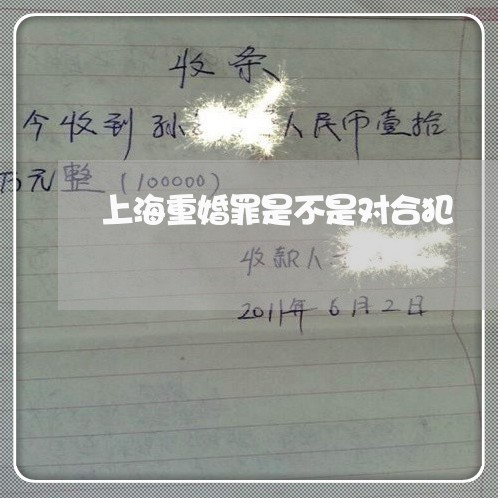 收条
今收到孙 人民币壹拾
万元整（100000）
上海重婚罪是不是对合犯
收款人
2011年6月2日